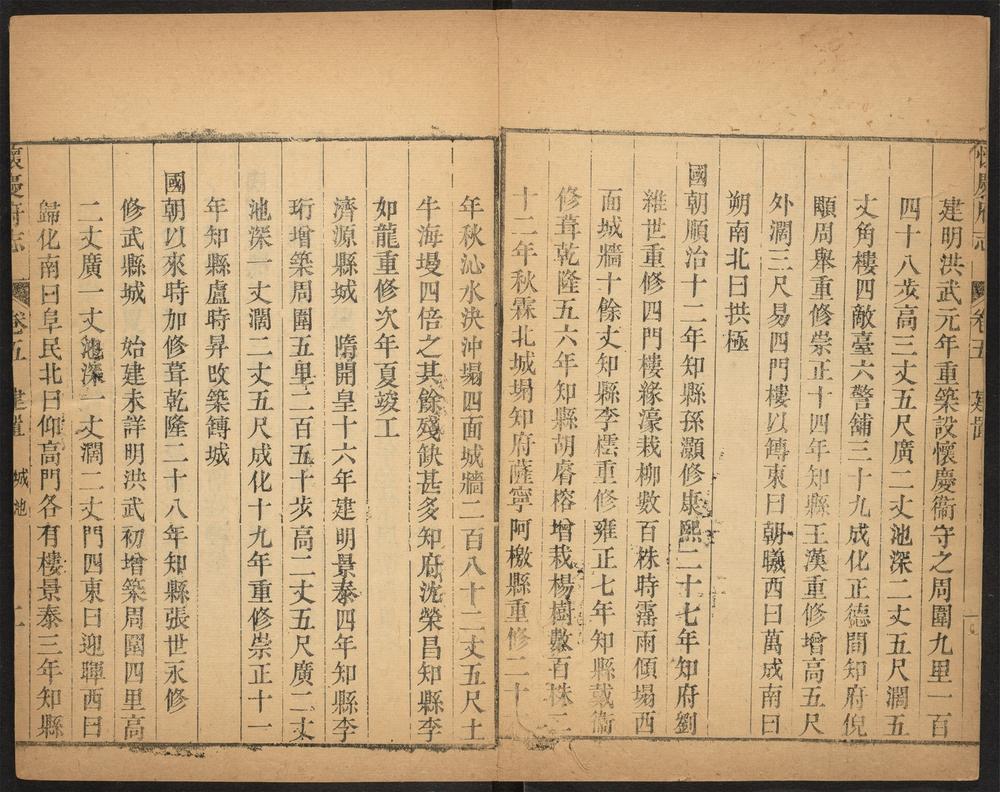 懷慶府志 卷五 建置
建明洪武元年重築設懷慶衞守之周圍九里一百
四十八步高三丈五尺廣二丈池深二丈五尺濶五
丈角樓四敵臺六警舖三十九成化正德間知府倪
顒周舉重修崇正十四年知縣王漢重修增高五尺
外濶三尺易四門樓以磚東曰朝曦西曰萬成南曰
朔南北曰拱極
國朝順治十二年知縣孫灝修康熙二十七年知府劉
維世重修四門樓緣濠栽柳數百株時霪雨傾塌西
面城牆十餘丈知縣李橒重修雍正七年知縣戴衞
修葺乾隆五六年知縣胡睿榕增栽楊樹數百株二
十二年秋霖北城塌知府薩寧阿檄縣重修二十
年秋沁水決沖塌四面城牆二百八十二丈五尺土
牛海墁四倍之其餘殘缺甚多知府沈榮昌知縣李
如龍重修次年夏竣工
濟源縣城 隋開皇十六年建明景泰四年知縣李
珩增築周圍五里二百五十步高二丈五尺廣二丈
池深一丈濶二丈五尺成化十九年重修崇正十一
年知縣盧時昇改築磚城
國朝以來時加修葺乾隆二十八年知縣張世永修
修武縣城 始建未詳明洪武初增築周圍四里高
二丈廣一丈池深一丈濶二丈門四東曰迎暉西曰
歸化南曰阜民北曰仰高門各有樓景泰三年知縣
懷慶府志 卷五 建置 城池 二